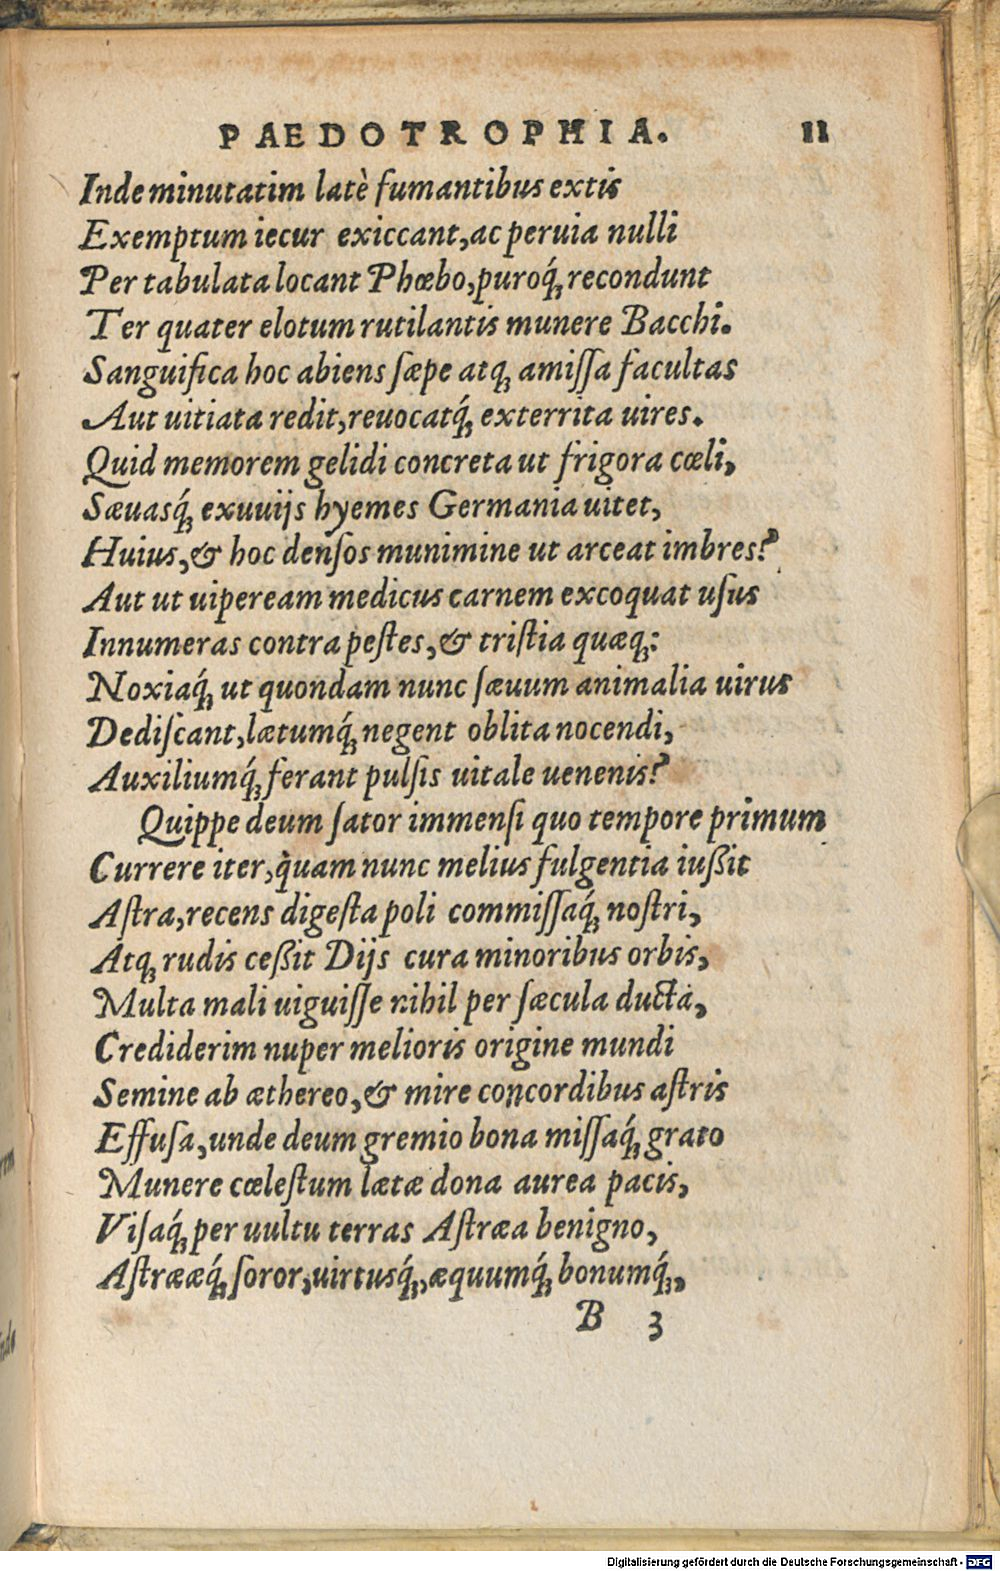 PAEDOTROPHIA. 11
Inde minutatim latè fumantibus extis
Exemptum iecur exiccant, ac peruia nulli
Per tabulata locant Phœbo, puroq́; recondunt
Ter quater elotum rutilantis munere Bacchi.
Sanguifica hoc abiens ſæpe atq; amiſſa facultas
Aut uitiata redit, reuocatq́; exterrita uires.
Quid memorem gelidi concreta ut frigora cœli,
Sæuasq́; exuuijs hyemes Germania uitet,
Huius, & hoc denſos munimine ut arceat imbres?
Aut ut uipeream medicus carnem excoquat uſus
Innumeras contra peſtes, & triſtia quæq;:
Noxiaq́; ut quondam nunc ſæuum animalia uirus
Dediſcant, lætumq́; negent oblita nocendi,
Auxiliumq́; ferant pulſis uitale uenenis?
Quippe deum ſator immenſi quo tempore primum
Currere iter, quàm nunc melius fulgentia iußit
Aſtra, recens digeſta poli commiſſaq́; noſtri,
Atq; rudis ceßit Dijs cura minoribus orbis,
Multa mali uiguiſſe nihil per ſæcula ducta,
Crediderim nuper melioris origine mundi
Semine ab æthereo, & mire concordibus aſtris
Effuſa, unde deum gremio bona miſſaq́; grato
Munere cœleſtum lætæ dona aurea pacis,
Viſaq́; per uultu terras Aſtræa benigno,
Aſtrææq́; ſoror, uirtusq́;, æquumq́; bonumq́;,
B 3
rem
Digitalisierung gefördert durch die Deutsche Forschungsgemeinschaft - DFG